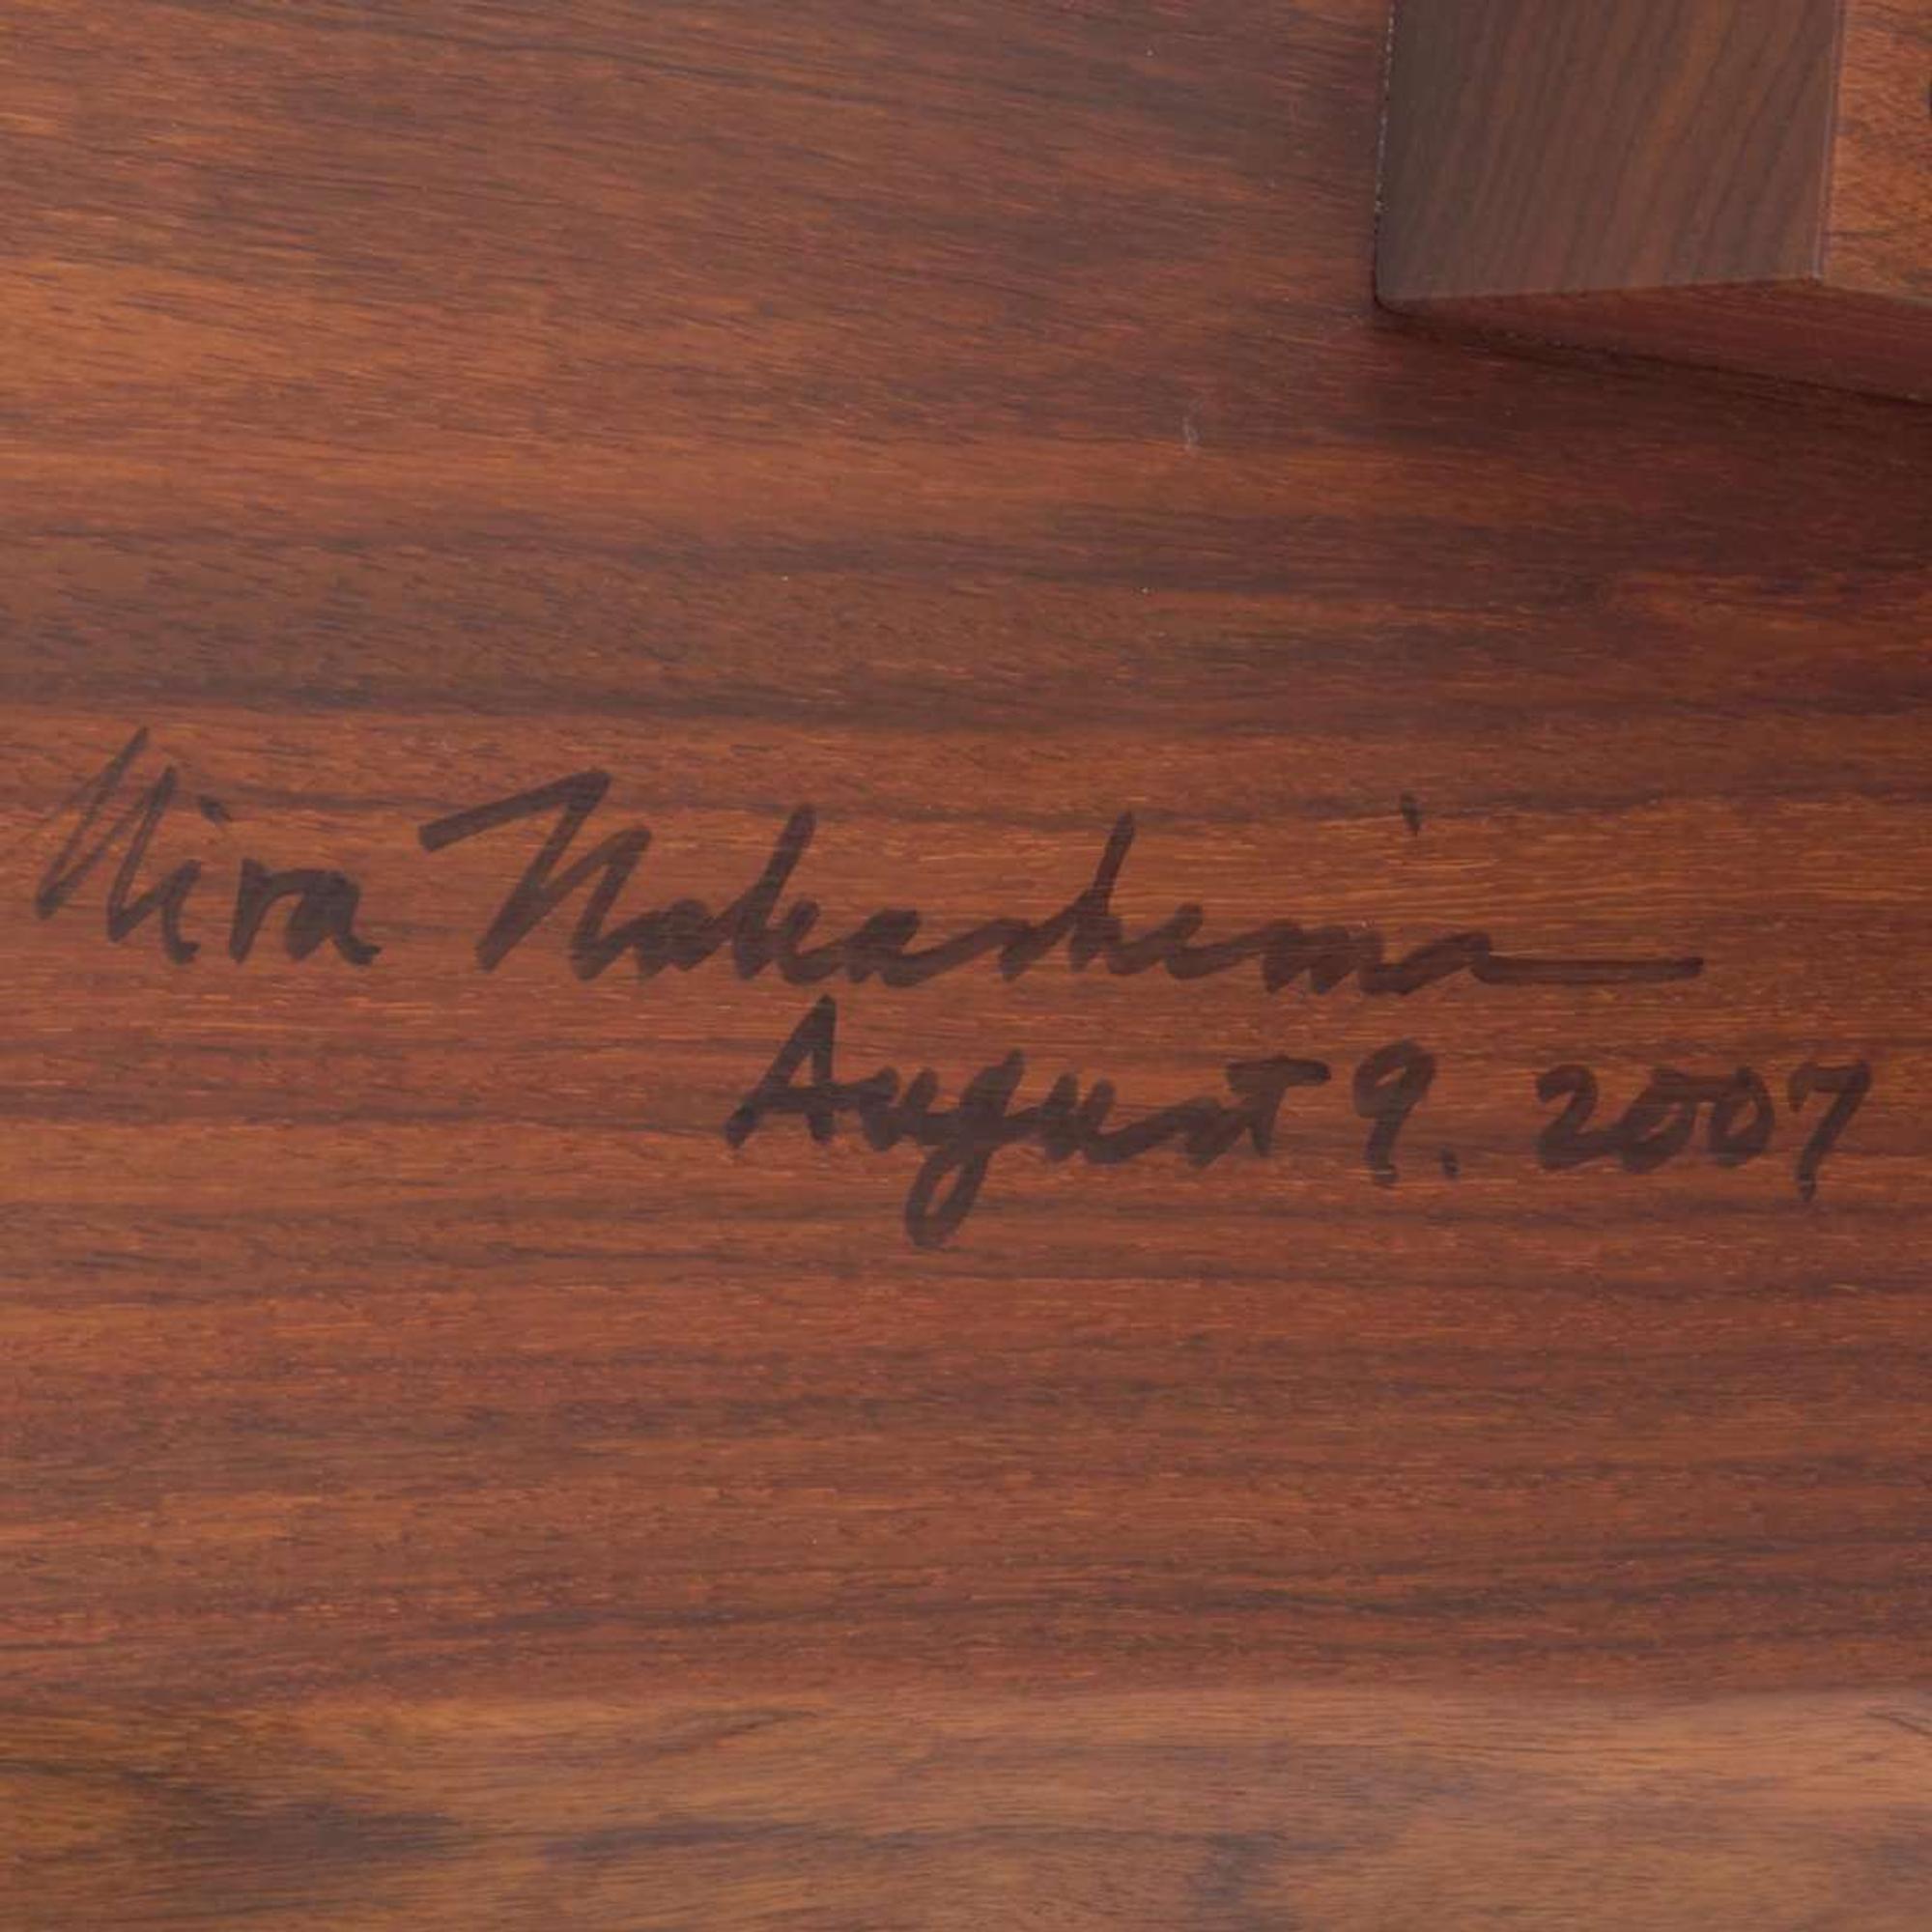 Mira Nakashima
August 9. 2007